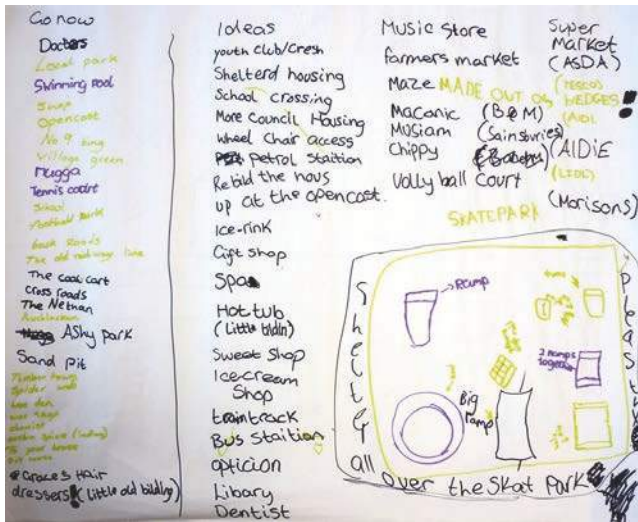 Go now
Doctors
Local park
Swinning pool
Swap
Opencast
No 9 ting
Village green
Mugga
Tennis coart
School
football park
back Roads
The old railway line
The coal cart
Cross roads
The Nethan
Ashy park
Sand Pit
Spider
bus stop
chemist
Grace's HAir
dressers (Little old bildiNg)
Ideas
youth club/cresh
Shelterd housing
School crossing
More Council Housing
wheel chair access
Petrol Staition
Rebild the hous
up at the opencast.
Ice-rink
Gift shop
Spa
Hot tub
(Little bildin)
Sweet Shop
Icecream
Shop
train track
Bus Staition
opticion
Libary
Dentist
Music Store
farmers market
Maze MADE OUT OG HEDGES
Maconic
Musiam
Chippy
Vollyball Court
Super
Market
(ASDA)
(TESCO)
(AlDI
(B&M)
(Sainsburies)
(AlDiE
(LIDL)
(Morisons)
SKATEPARK
Ramp
2 ramps
together
Big
ramp
Shelter all over the Skat Park Please